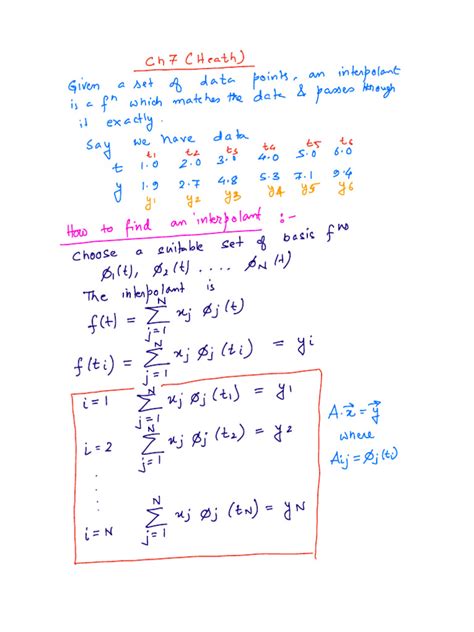 Ch 7 (Heath)
Given a set of data points, an interpolant
is a fⁿ which matches the data & passes through
it exactly.
Say we have data
t₁ t₂ t₃ t₄ t₅ t₆
t 1.0 2.0 3.0 4.0 5.0 6.0
y 1.9 2.7 4.8 5.3 7.1 9.4
y₁ y₂ y₃ y₄ y₅ y₆
How to find an interpolant :-
Choose a suitable set of basis fⁿˢ
ϕ₁(t), ϕ₂(t) .... ϕ_N(t)
The interpolant is
f(t) = ∑_{j=1}^{N} xⱼ ϕⱼ(t)
f(tᵢ) = ∑_{j=1}^{N} xⱼ ϕⱼ(tᵢ) = yᵢ
i = 1 ∑_{j=1}^{N} xⱼ ϕⱼ(t₁) = y₁
i = 2 ∑_{j=1}^{N} xⱼ ϕⱼ(t₂) = y₂
i = N ∑_{j=1}^{N} xⱼ ϕⱼ(t_N) = y_N
A·x⃗ = y⃗
where
Aᵢⱼ = ϕⱼ(tᵢ)